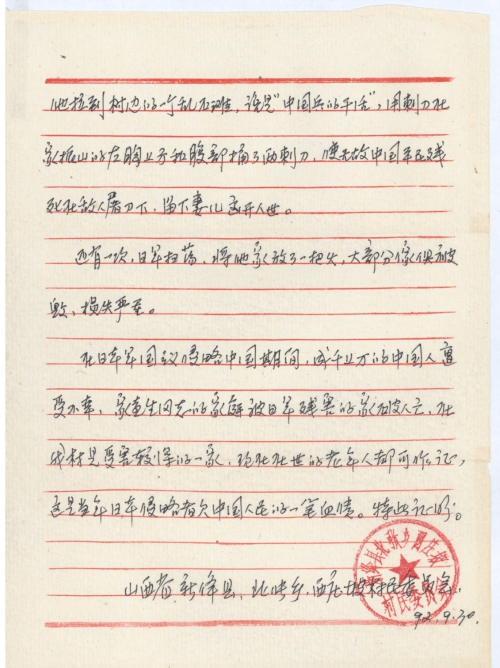 他拉到村边的一个乱石堆，说是“中国兵的干活”，用刺刀在
家振山的左胸上方和腹部捅了两刺刀，使无故中国平民残
死在敌人屠刀下，留下妻儿离开人世。
还有一次，日军扫荡，将他家放了一把火，大部分家俱被
毁，损失严重。
在日本军国主义侵略中国期间，成千上万的中国人遭
受不幸，家童生同志的家庭被日军残害的家破人亡，在
我村是受害较深的一家，现在在世的老年人都可作证，
这是当年日本侵略者欠中国人民的一笔血债。特此证明。
山西省新绛县，北张乡，西庄坡村民委员会
村民委员会
92.9.30.